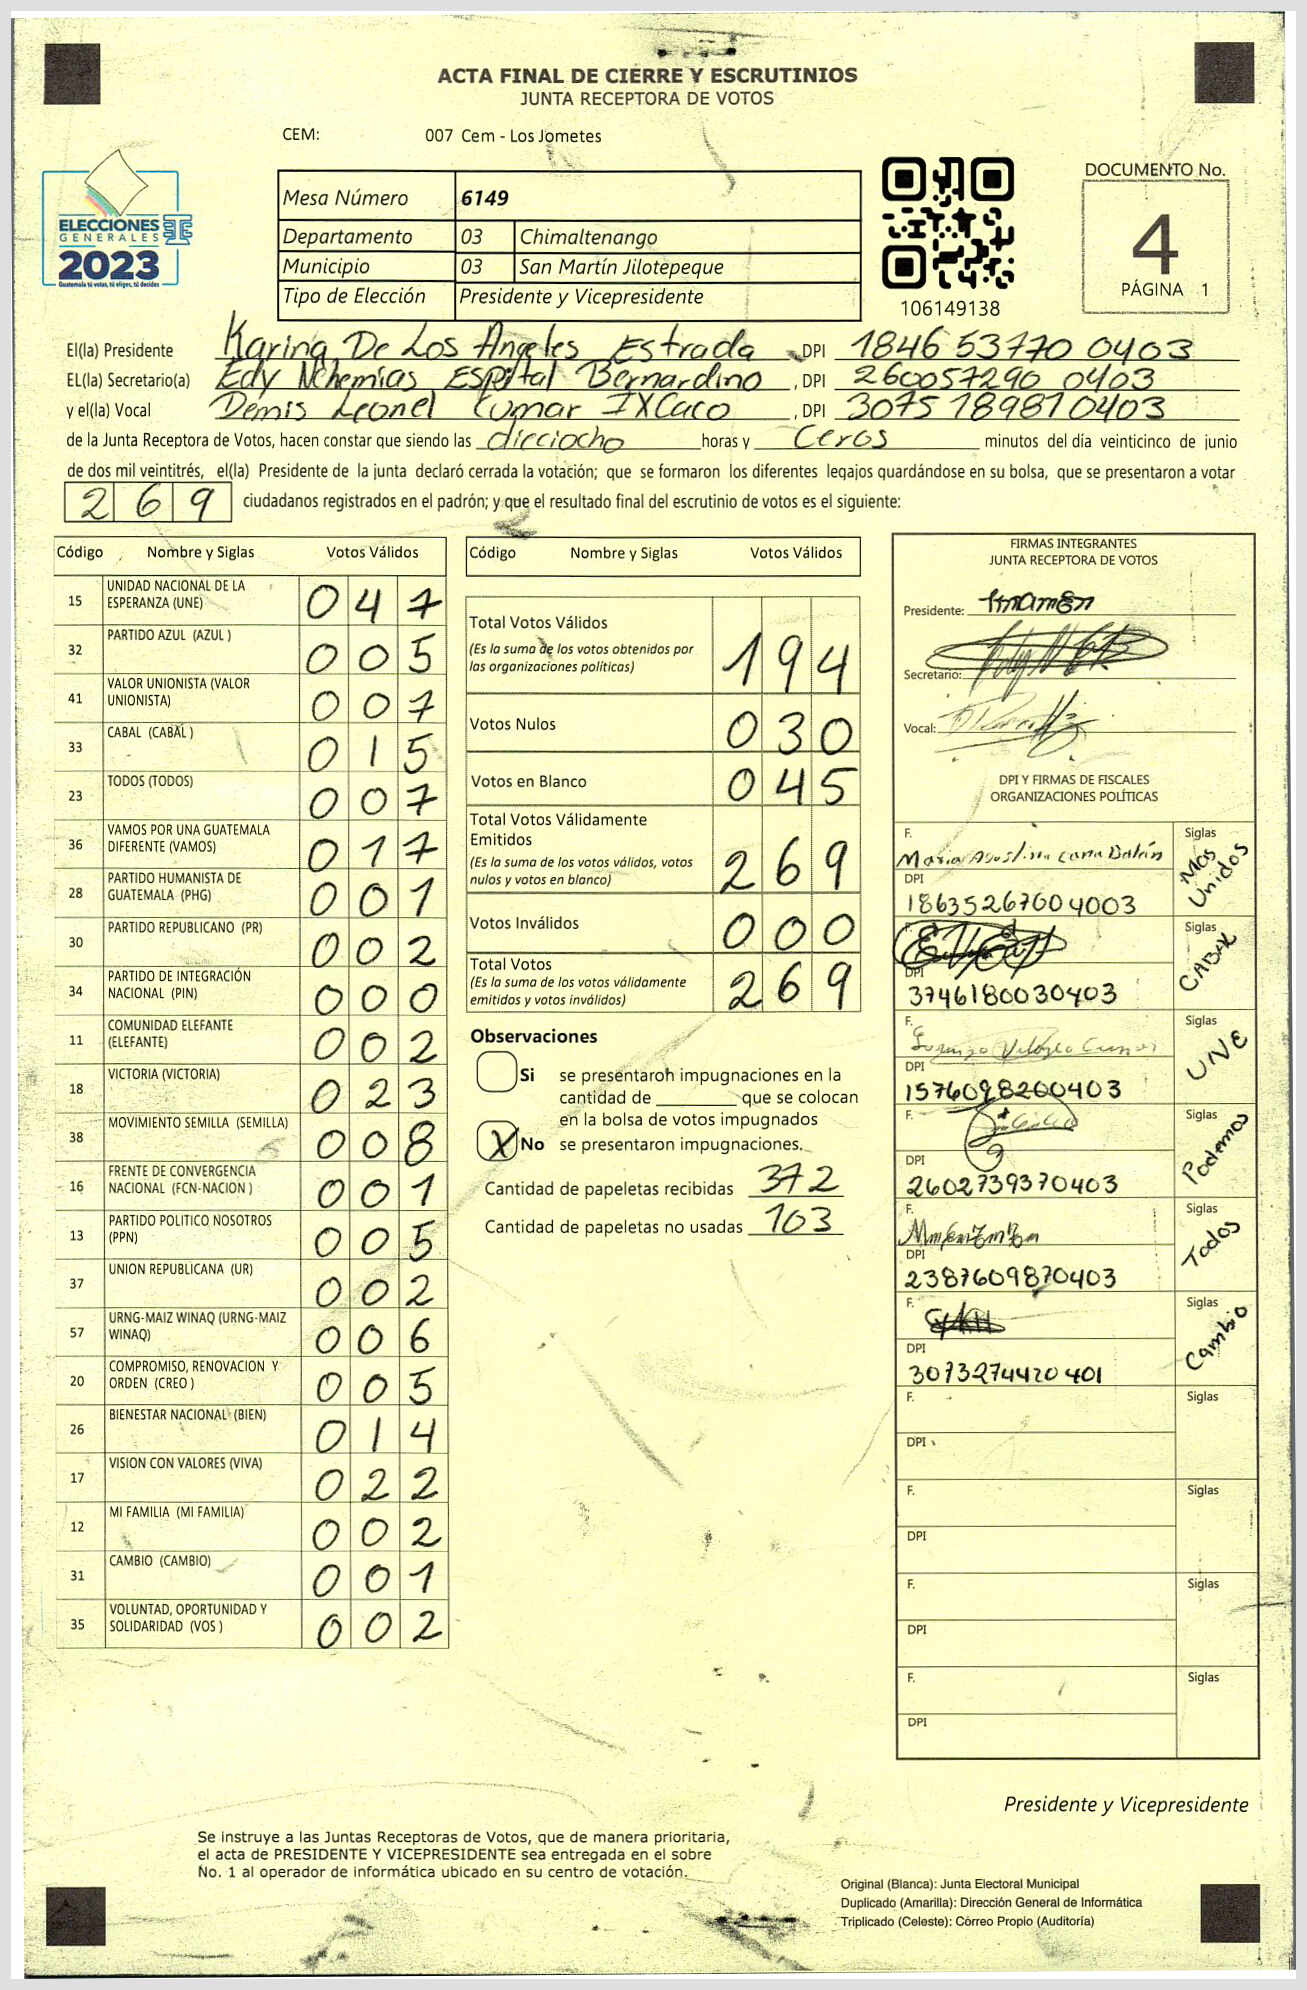 ACTA FINAL DE CIERRE Y ESCRUTINIOS
JUNTA RECEPTORA DE VOTOS
CEM: 007 Cem - Los Jometes
ELECCIONES
GENERALES
2023
Guatemala tú votas, tú eliges, tú decides
Mesa Número 6149
Departamento 03 Chimaltenango
Municipio 03 San Martín Jilotepeque
Tipo de Elección Presidente y Vicepresidente
106149138
DOCUMENTO No.
4
PÁGINA 1
El(la) Presidente Karina De Los Angeles Estrada , DPI 1846 53770 0403
EL(la) Secretario(a) Edy Nehemias Espital Bernardino , DPI 260057290 0403
y el(la) Vocal Denis Leonel Cumar IXCaco , DPI 3075 189810403
de la Junta Receptora de Votos, hacen constar que siendo las dieciocho horas y Ceros minutos del día veinticinco de junio
de dos mil veintitrés, el(la) Presidente de la junta declaró cerrada la votación; que se formaron los diferentes legajos quardándose en su bolsa, que se presentaron a votar
269 ciudadanos registrados en el padrón; y que el resultado final del escrutinio de votos es el siguiente:
Código Nombre y Siglas Votos Válidos
15 UNIDAD NACIONAL DE LA ESPERANZA (UNE) 047
32 PARTIDO AZUL (AZUL ) 005
41 VALOR UNIONISTA (VALOR UNIONISTA) 007
33 CABAL (CABAL ) 015
23 TODOS (TODOS) 007
36 VAMOS POR UNA GUATEMALA DIFERENTE (VAMOS) 017
28 PARTIDO HUMANISTA DE GUATEMALA (PHG) 001
30 PARTIDO REPUBLICANO (PR) 002
34 PARTIDO DE INTEGRACIÓN NACIONAL (PIN) 000
11 COMUNIDAD ELEFANTE (ELEFANTE) 002
18 VICTORIA (VICTORIA) 023
38 MOVIMIENTO SEMILLA (SEMILLA) 008
16 FRENTE DE CONVERGENCIA NACIONAL (FCN-NACION ) 001
13 PARTIDO POLITICO NOSOTROS (PPN) 005
37 UNION REPUBLICANA (UR) 002
57 URNG-MAIZ WINAQ (URNG-MAIZ WINAQ) 006
20 COMPROMISO, RENOVACION Y ORDEN (CREO ) 005
26 BIENESTAR NACIONAL (BIEN) 014
17 VISION CON VALORES (VIVA) 022
12 MI FAMILIA (MI FAMILIA) 002
31 CAMBIO (CAMBIO) 001
35 VOLUNTAD, OPORTUNIDAD Y SOLIDARIDAD (VOS ) 002
Código Nombre y Siglas Votos Válidos
Total Votos Válidos 194
(Es la suma de los votos obtenidos por
las organizaciones políticas)
Votos Nulos 030
Votos en Blanco 045
Total Votos Válidamente
Emitidos 269
(Es la suma de los votos válidos, votos
nulos y votos en blanco)
Votos Inválidos 000
Total Votos 269
(Es la suma de los votos válidamente
emitidos y votos inválidos)
Observaciones
Si se presentaron impugnaciones en la
cantidad de ________ que se colocan
en la bolsa de votos impugnados
X No se presentaron impugnaciones.
Cantidad de papeletas recibidas 372
Cantidad de papeletas no usadas 103
FIRMAS INTEGRANTES
JUNTA RECEPTORA DE VOTOS
Presidente:
Secretario:
Vocal:
DPI Y FIRMAS DE FISCALES
ORGANIZACIONES POLÍTICAS
F. Maria Agustina Siglas Mos Unidos
DPI
1863526760 4003
F. Siglas CABAL
DPI
3746180030403
F. Siglas UNE
DPI
1576098200403
F. Siglas Podemos
DPI
2602739370403
F. Siglas Todos
DPI
2387609870403
F. Siglas Cambio
DPI
3073274420 401
F. Siglas
DPI
F. Siglas
DPI
F. Siglas
DPI
F. Siglas
DPI
Presidente y Vicepresidente
Se instruye a las Juntas Receptoras de Votos, que de manera prioritaria,
el acta de PRESIDENTE Y VICEPRESIDENTE sea entregada en el sobre
No. 1 al operador de informática ubicado en su centro de votación.
Original (Blanca): Junta Electoral Municipal
Duplicado (Amarilla): Dirección General de Informática
Triplicado (Celeste): Córreo Propio (Auditoría)